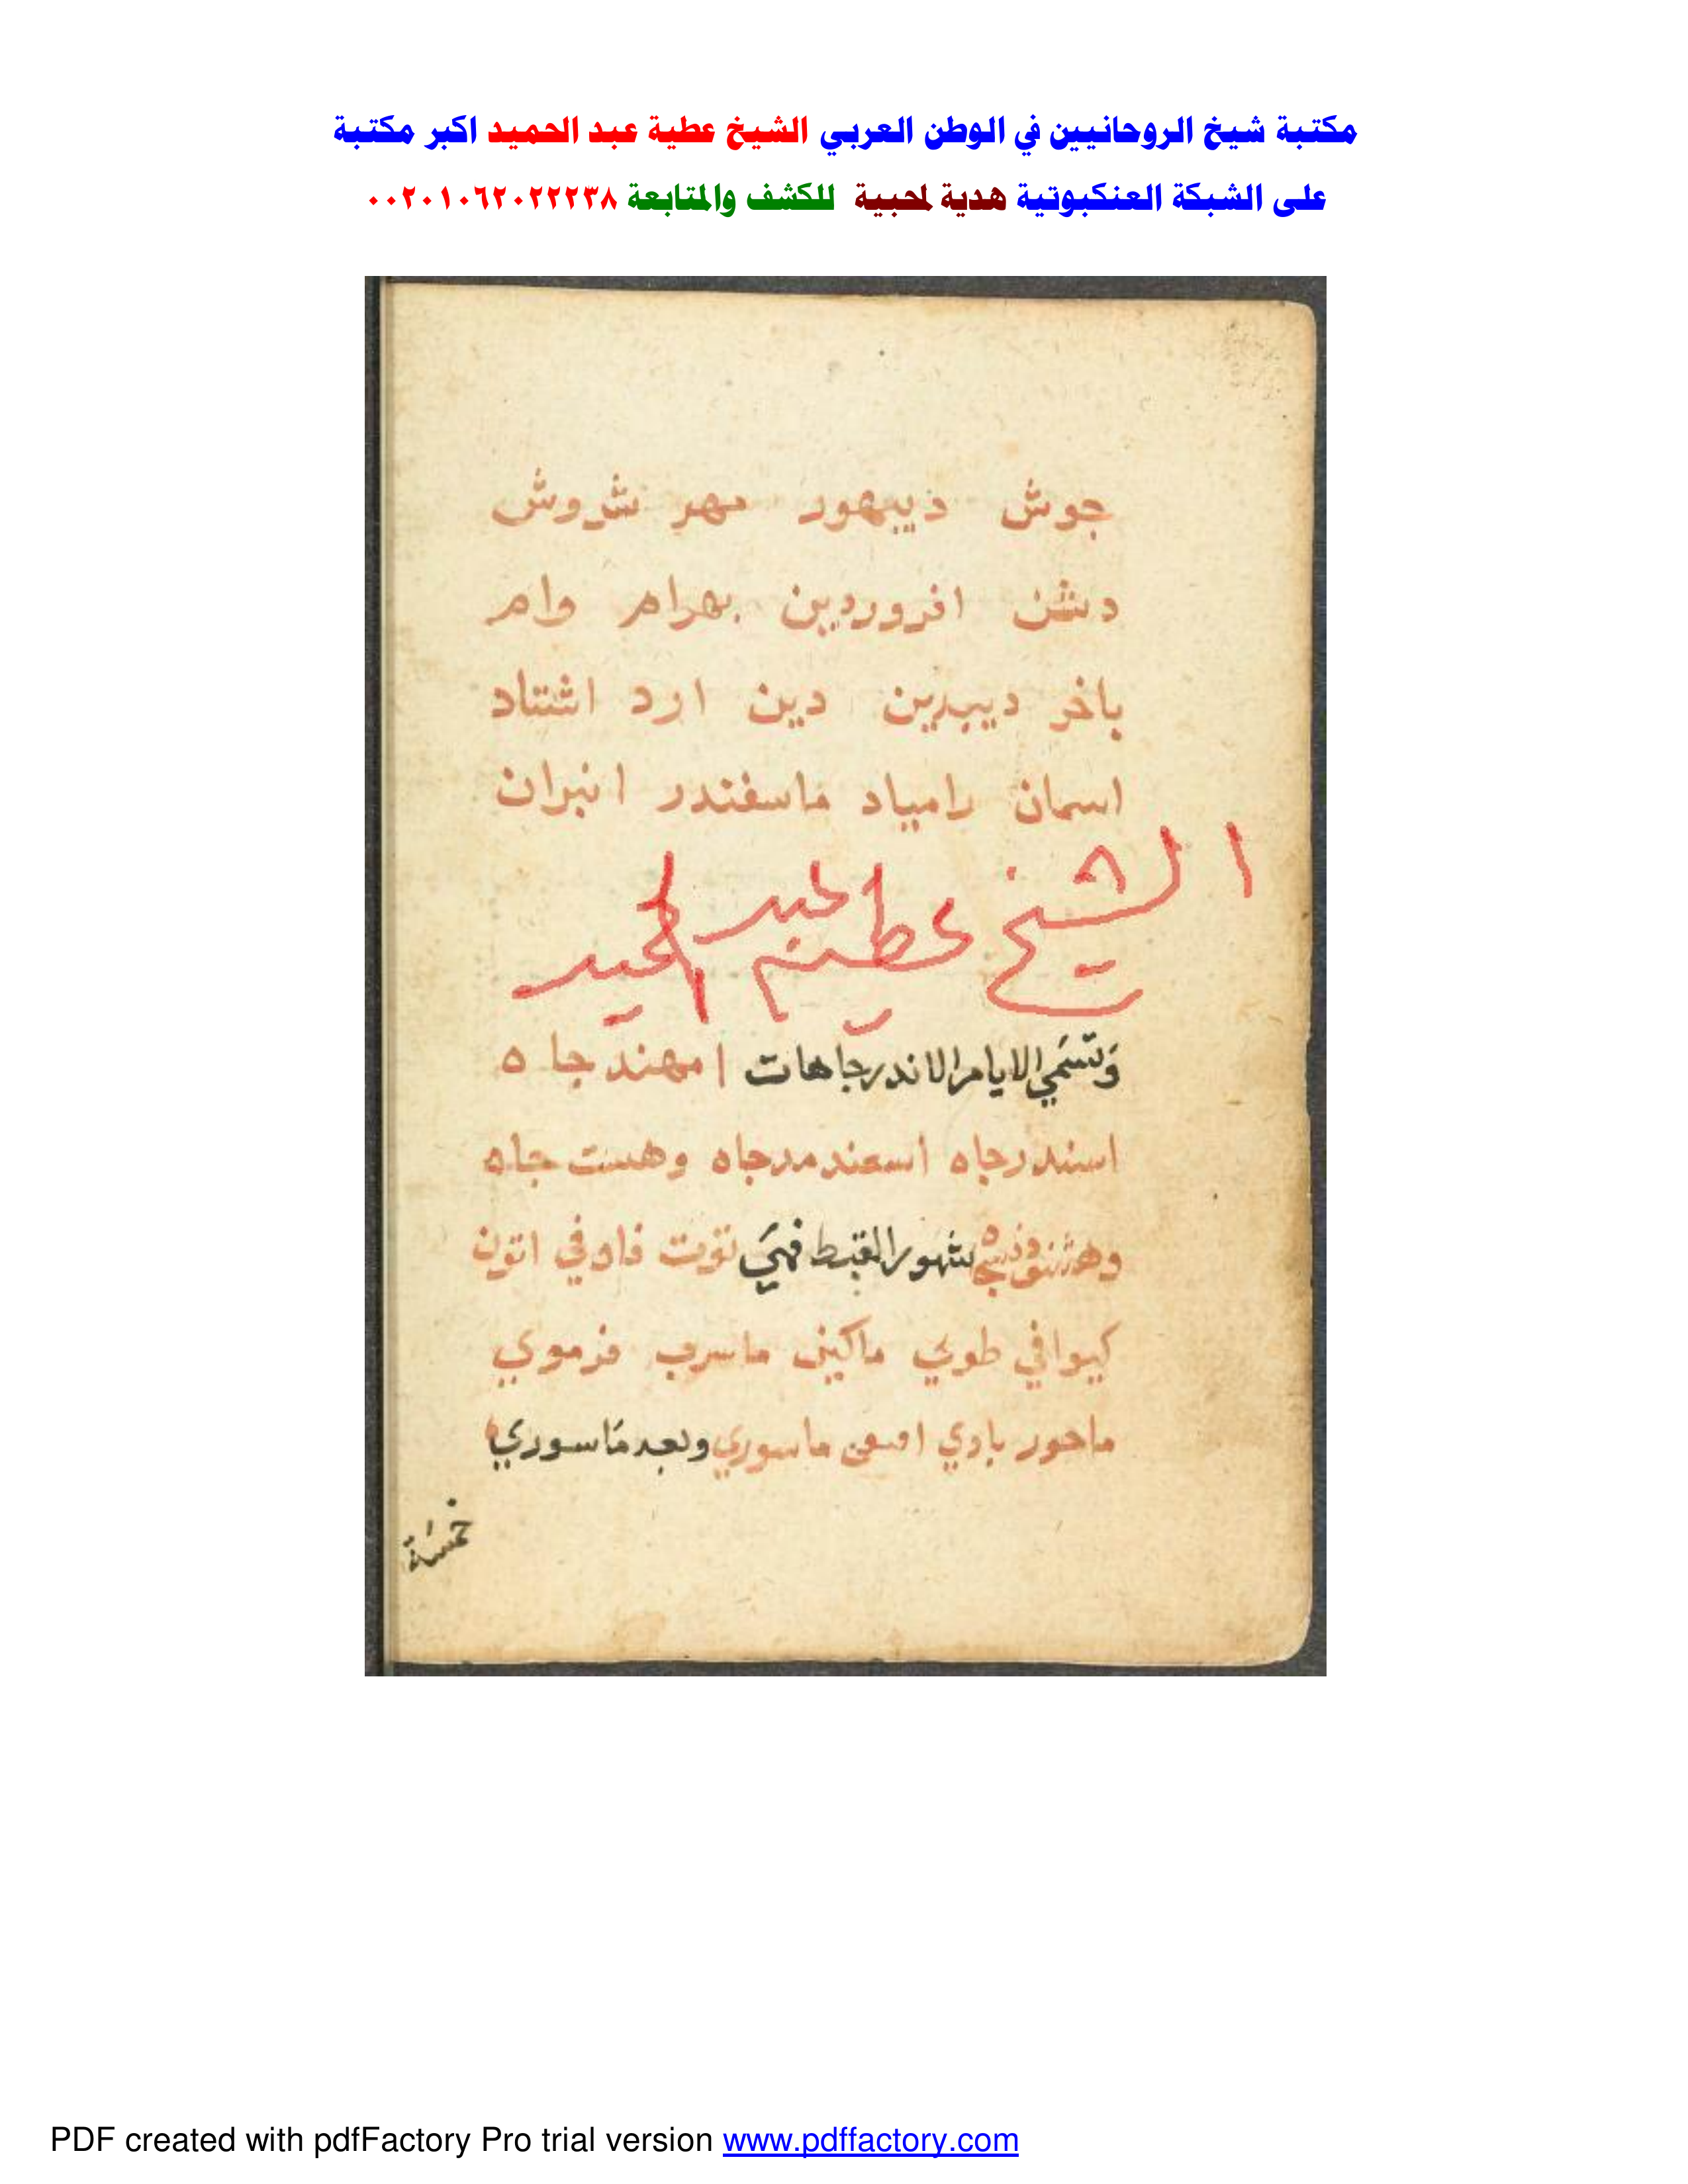 مكتبة شيخ الروحانيين في الوطن العربي الشيخ عطية عبد الحميد اكبر مكتبة
على الشبكة العنكبوتية هدية لمحبية للكشف والمتابعة ٠٠٢٠١٠٦٢٠٢٢٢٣٨
جوش ديبهور مهر شروش
دشن افروردين بهرام وام
باخر ديبدين دين ارد اشتاد
اسمان رامياد ماسفندر انيران
الشيخ عطية عبد الحميد
وَتسَمي الايام الاندرجاهات امهندجاه
اسندرجاه اسعندمدرجاه وهست جاه
شهور القبط فهيَ توت فاوفي اتون
كيوافي طوبي ماكين ماسرب فرموي
ماحور باوي ماسوري وبعد مَاسوري
خمسَة
PDF created with pdfFactory Pro trial version www.pdffactory.com